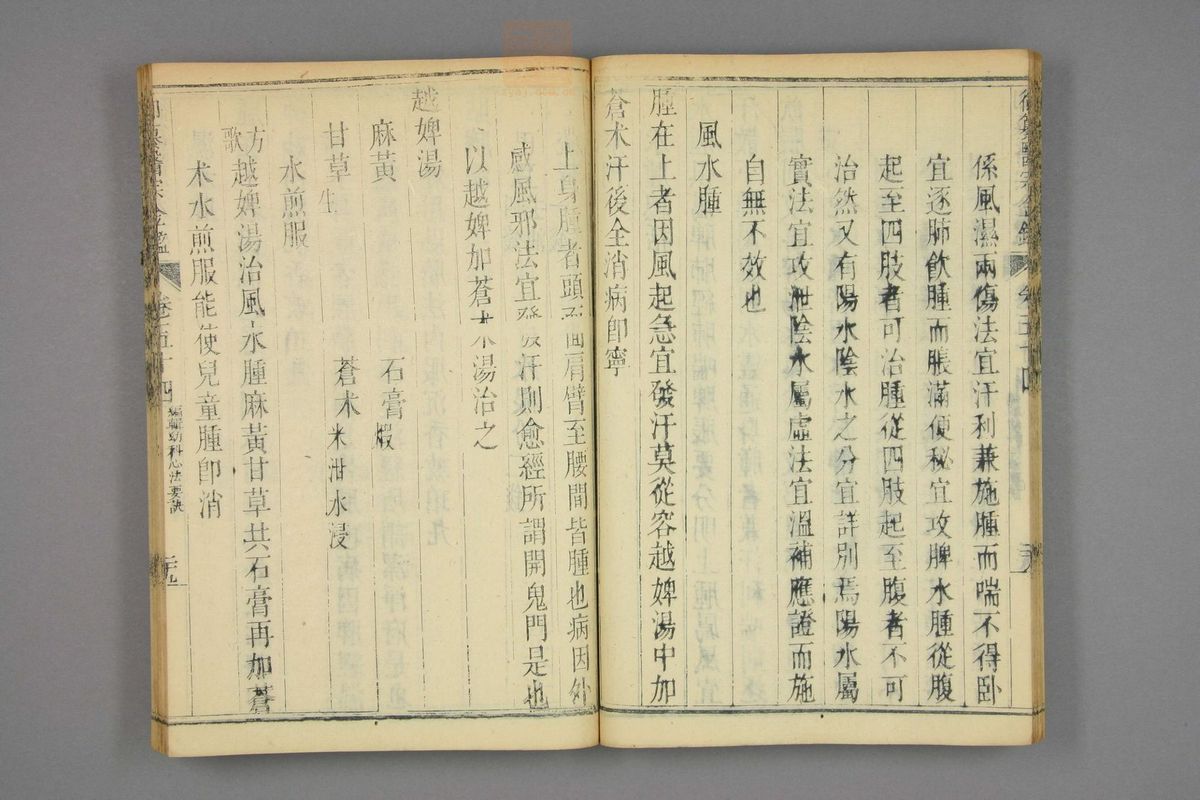 御纂醫宗金鑑
卷五十四
係風濕兩傷法宜汗利兼施腫而喘不得卧
宜逐肺飲腫而脹滿便秘宜攻脾水腫從腹
起至四肢者可治腫從四肢起至腹者不可
治然又有陽水陰水之分宜詳別焉陽水屬
實法宜攻泄陰水屬虛法宜溫補應證而施
自無不效也
風水腫
腫在上者因風起急宜發汗莫從容越婢湯中加
蒼朮汗後全消病卽寧
上身腫者頭面肩臂至腰間皆腫也病因外
感風邪法宜發汗則愈經所謂開鬼門是也
以越婢加蒼朮湯治之
越婢湯
麻黃 石膏煆
甘草生 蒼朮米泔水浸
水煎服
方歌 越婢湯治風水腫麻黃甘草共石膏再加蒼
朮水煎服能使兒童腫卽消
御纂醫宗金鑑
卷五十四
編輯幼科心法要訣